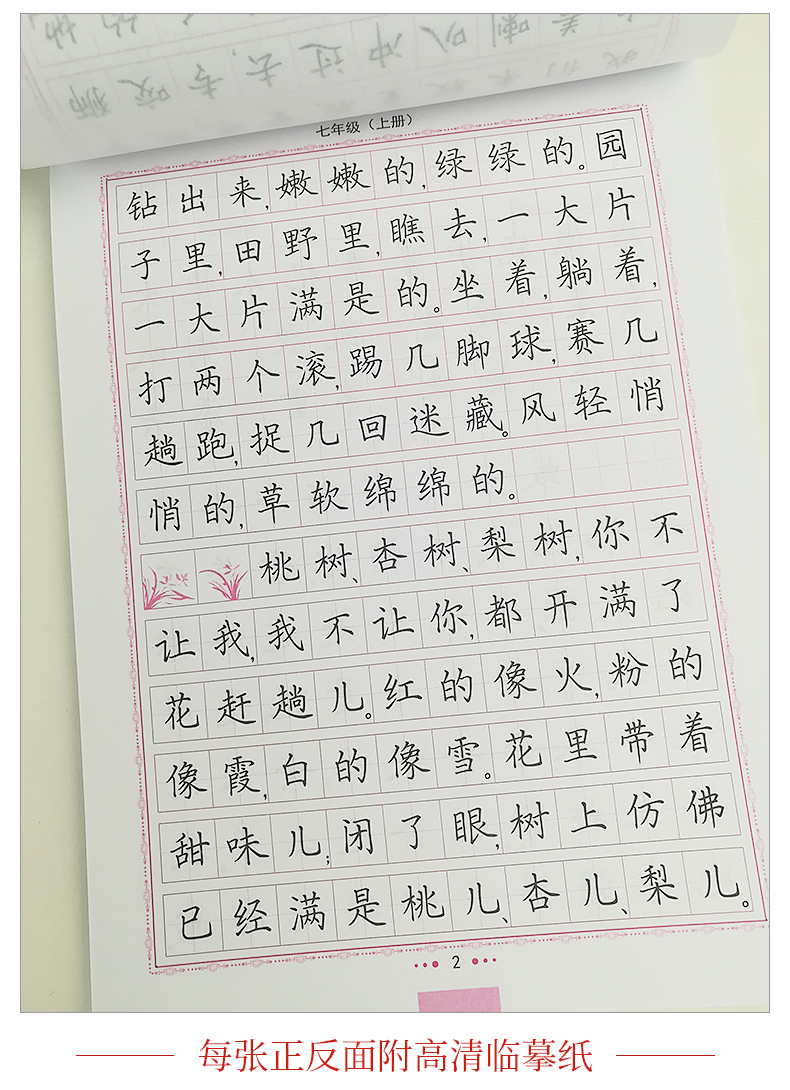 七年级（上册）
钻出来,嫩嫩的,绿绿的。园
子里,田野里,瞧去,一大片
一大片满是的。坐着,躺着,
打两个滚,踢几脚球,赛几
趟跑,捉几回迷藏。风轻悄
悄的,草软绵绵的。
桃树、杏树、梨树,你不
让我,我不让你,都开满了
花赶趟儿。红的像火,粉的
像霞,白的像雪。花里带着
甜味儿;闭了眼,树上仿佛
已经满是桃儿、杏儿、梨儿。
2
每张正反面附高清临摹纸